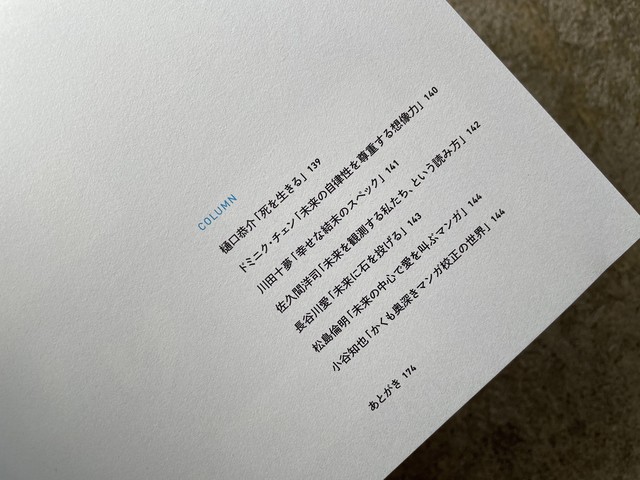 COLUMN
樋口恭介「死を生きる」 139
ドミニク・チェン「未来の自律性を尊重する想像力」 140
川田十夢「幸せな結末のスペック」 141
佐久間洋司「未来を観測する私たち、という読み方」 142
長谷川愛「未来に石を投げる」 143
松島倫明「未来の中心で愛を叫ぶマンガ」 144
小谷知也「かくも奥深きマンガ校正の世界」 144
あとがき 174